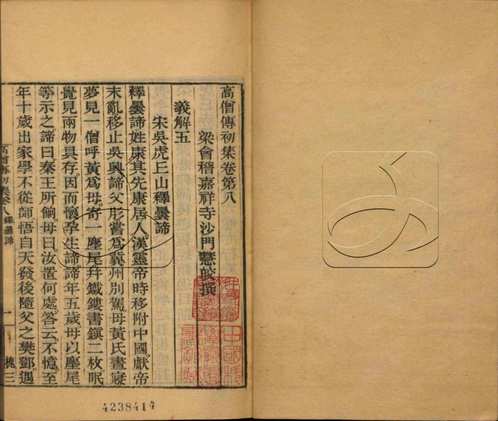 高僧傳初集卷第八
梁會稽嘉祥寺沙門慧皎撰
義解五
宋吳虎丘山釋曇諦
釋曇諦姓康其先康居人漢靈帝時移附中國獻帝
末亂移止吳興諦父肜嘗爲冀州別駕母黃氏晝寢
夢見一僧呼黃爲母寄一麈尾幷鐵鏤書鎭二枚眠
覺見兩物具存因而懷孕生諦諦年五歲母以麈尾
等示之諦曰秦王所餉母曰汝置何處答云不憶至
年十歲出家學不從師悟自天發後隨父之樊鄧遇
高僧傳初集卷八 釋曇諦
一
槐三
4238414